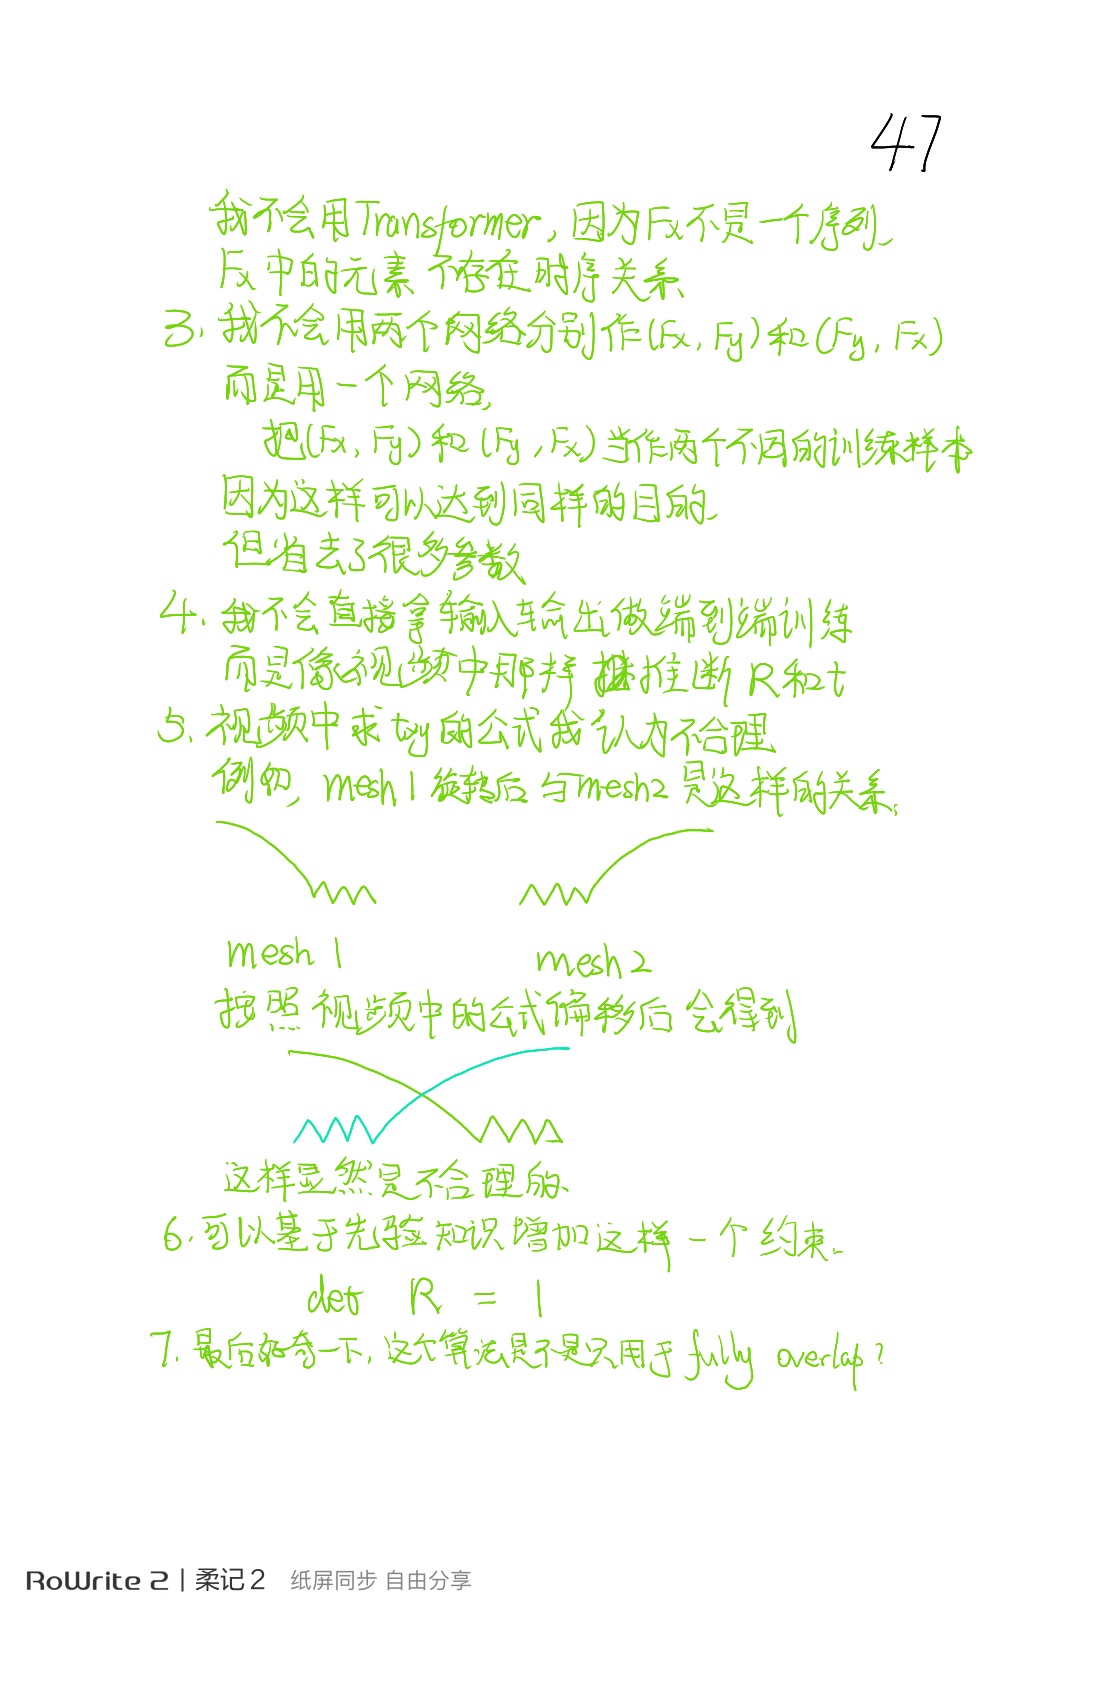 47
我不会用Transformer,因为Fx不是一个序列、
Fx中的元素不存在时序关系、
3、我不会用两个网络分别作(Fx, Fy)和(Fy, Fx)
而是用一个网络,
把(Fx, Fy)和(Fy, Fx)当作两个不同的训练样本
因为这样可以达到同样的目的、
但省去了很多参数
4、我不会直接拿输入输出做端到端训练
而是像视频中那样推断R和t
5、视频中求txy的公式我认为不合理
例如,mesh1旋转后与mesh2是这样的关系、
mesh 1
mesh 2
按照视频中的公式偏移后会得到
这样显然是不合理的、
6、可以基于先验知识增加这样一个约束、
det R = 1
7、最后好奇一下,这个算法是不是只用于fully overlap?
RoWrite 2 | 柔记2 纸屏同步 自由分享